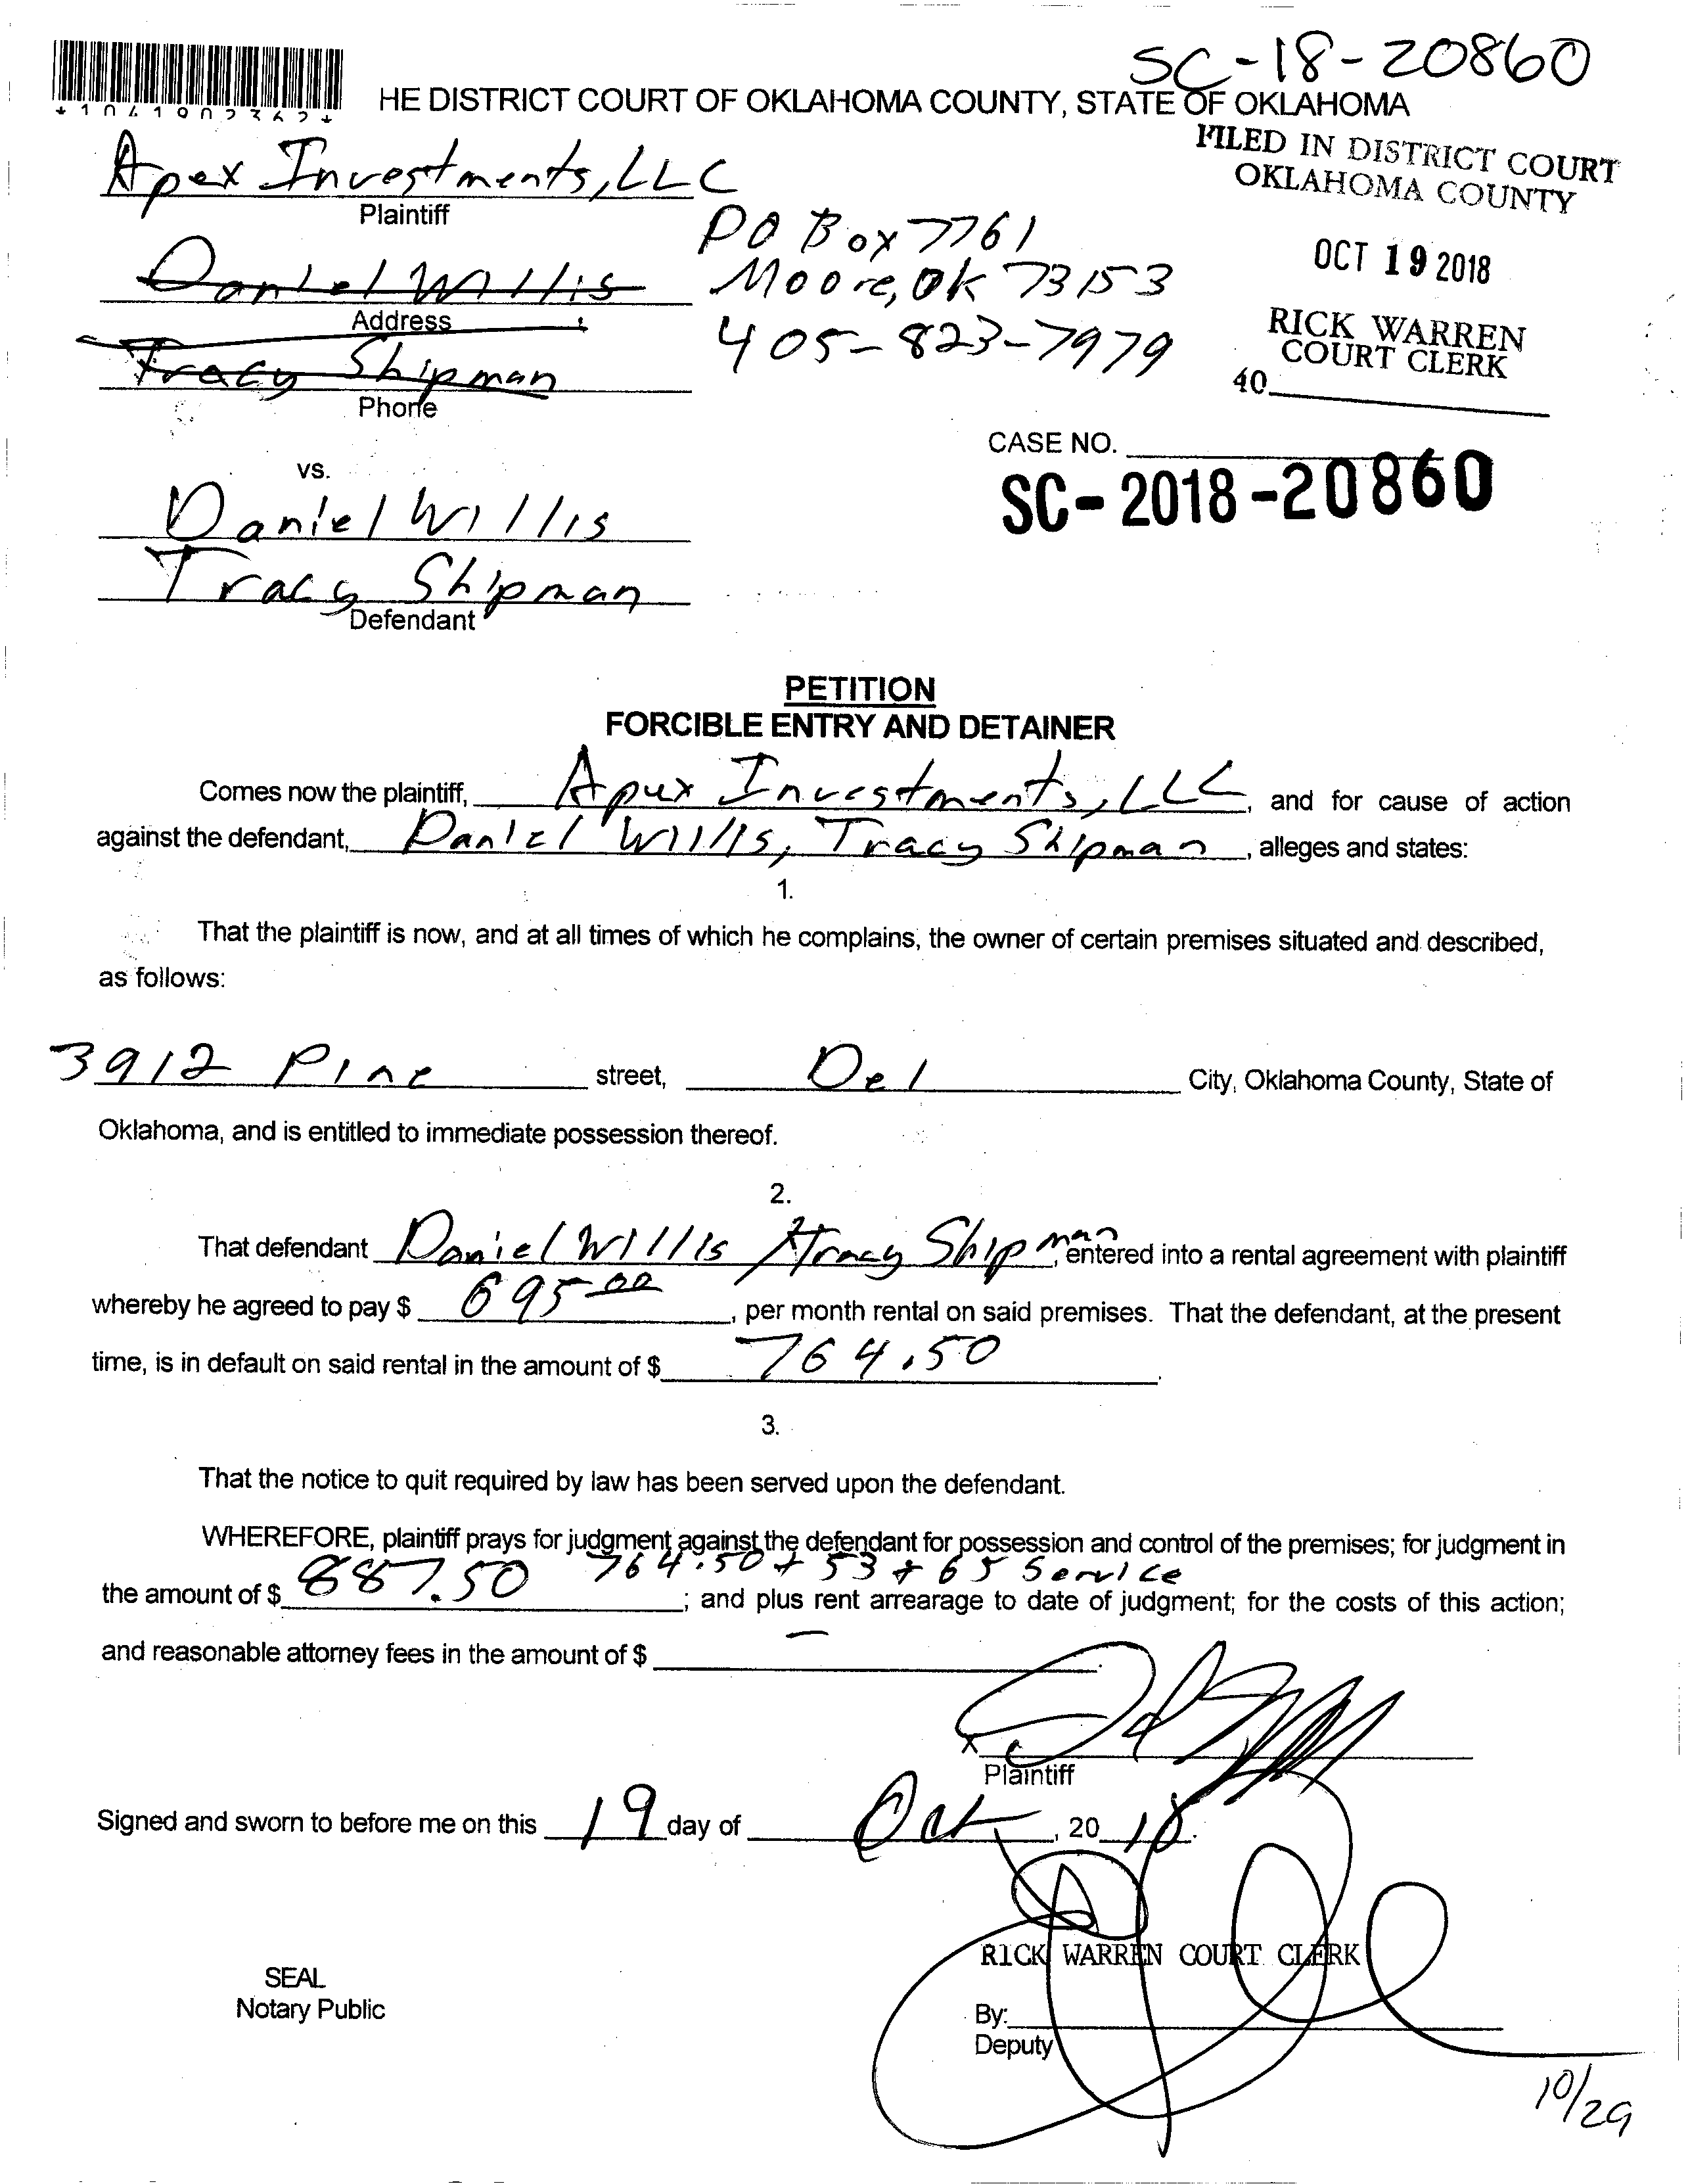 SC-18-20860
*1041902362*
HE DISTRICT COURT OF OKLAHOMA COUNTY, STATE OF OKLAHOMA
FILED IN DISTRICT COURT
OKLAHOMA COUNTY
Apex Investments, LLC
Plaintiff
PO Box 7761
OCT 19 2018
Daniel Willis
Moore, OK 73153
Address
RICK WARREN
COURT CLERK
405-823-7979
Tracy Shipman
40
Phone
CASE NO.
vs.
SC-2018-20860
Daniel Willis
Tracy Shipman
Defendant
PETITION
FORCIBLE ENTRY AND DETAINER
Comes now the plaintiff, Apex Investments, LLC, and for cause of action
against the defendant, Daniel Willis, Tracy Shipman, alleges and states:
1.
That the plaintiff is now, and at all times of which he complains, the owner of certain premises situated and described,
as follows:
3912 Pine street, Del City, Oklahoma County, State of
Oklahoma, and is entitled to immediate possession thereof.
2.
That defendant Daniel Willis / Tracy Shipman, entered into a rental agreement with plaintiff
whereby he agreed to pay $ 695.00, per month rental on said premises. That the defendant, at the present
time, is in default on said rental in the amount of $ 764.50.
3.
That the notice to quit required by law has been served upon the defendant.
WHEREFORE, plaintiff prays for judgment against the defendant for possession and control of the premises; for judgment in
764.50 + 53 + 65 Service
the amount of $ 887.50; and plus rent arrearage to date of judgment; for the costs of this action;
and reasonable attorney fees in the amount of $ —.
X
Plaintiff
Signed and sworn to before me on this 19 day of Oct, 2018.
RICK WARREN COURT CLERK
SEAL
Notary Public
By:
Deputy
10/29